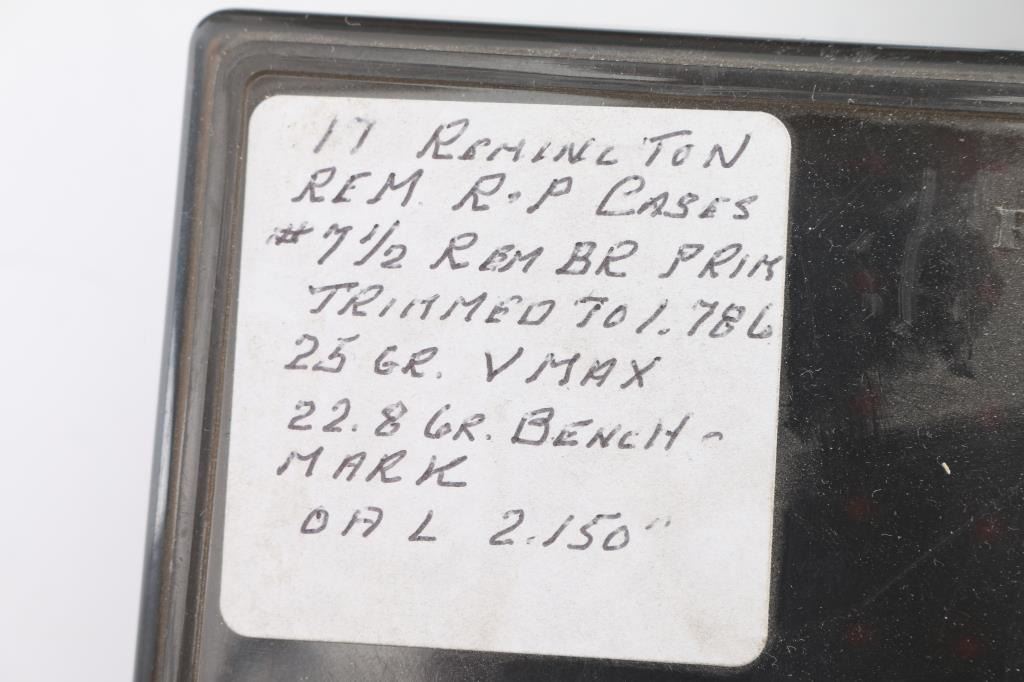 17 REMINGTON
REM. R-P CASES
#7 1/2 REM BR PRIM
TRIMMED TO 1.786
25 GR. VMAX
22.8 GR. BENCH-
MARK
OAL 2.150"